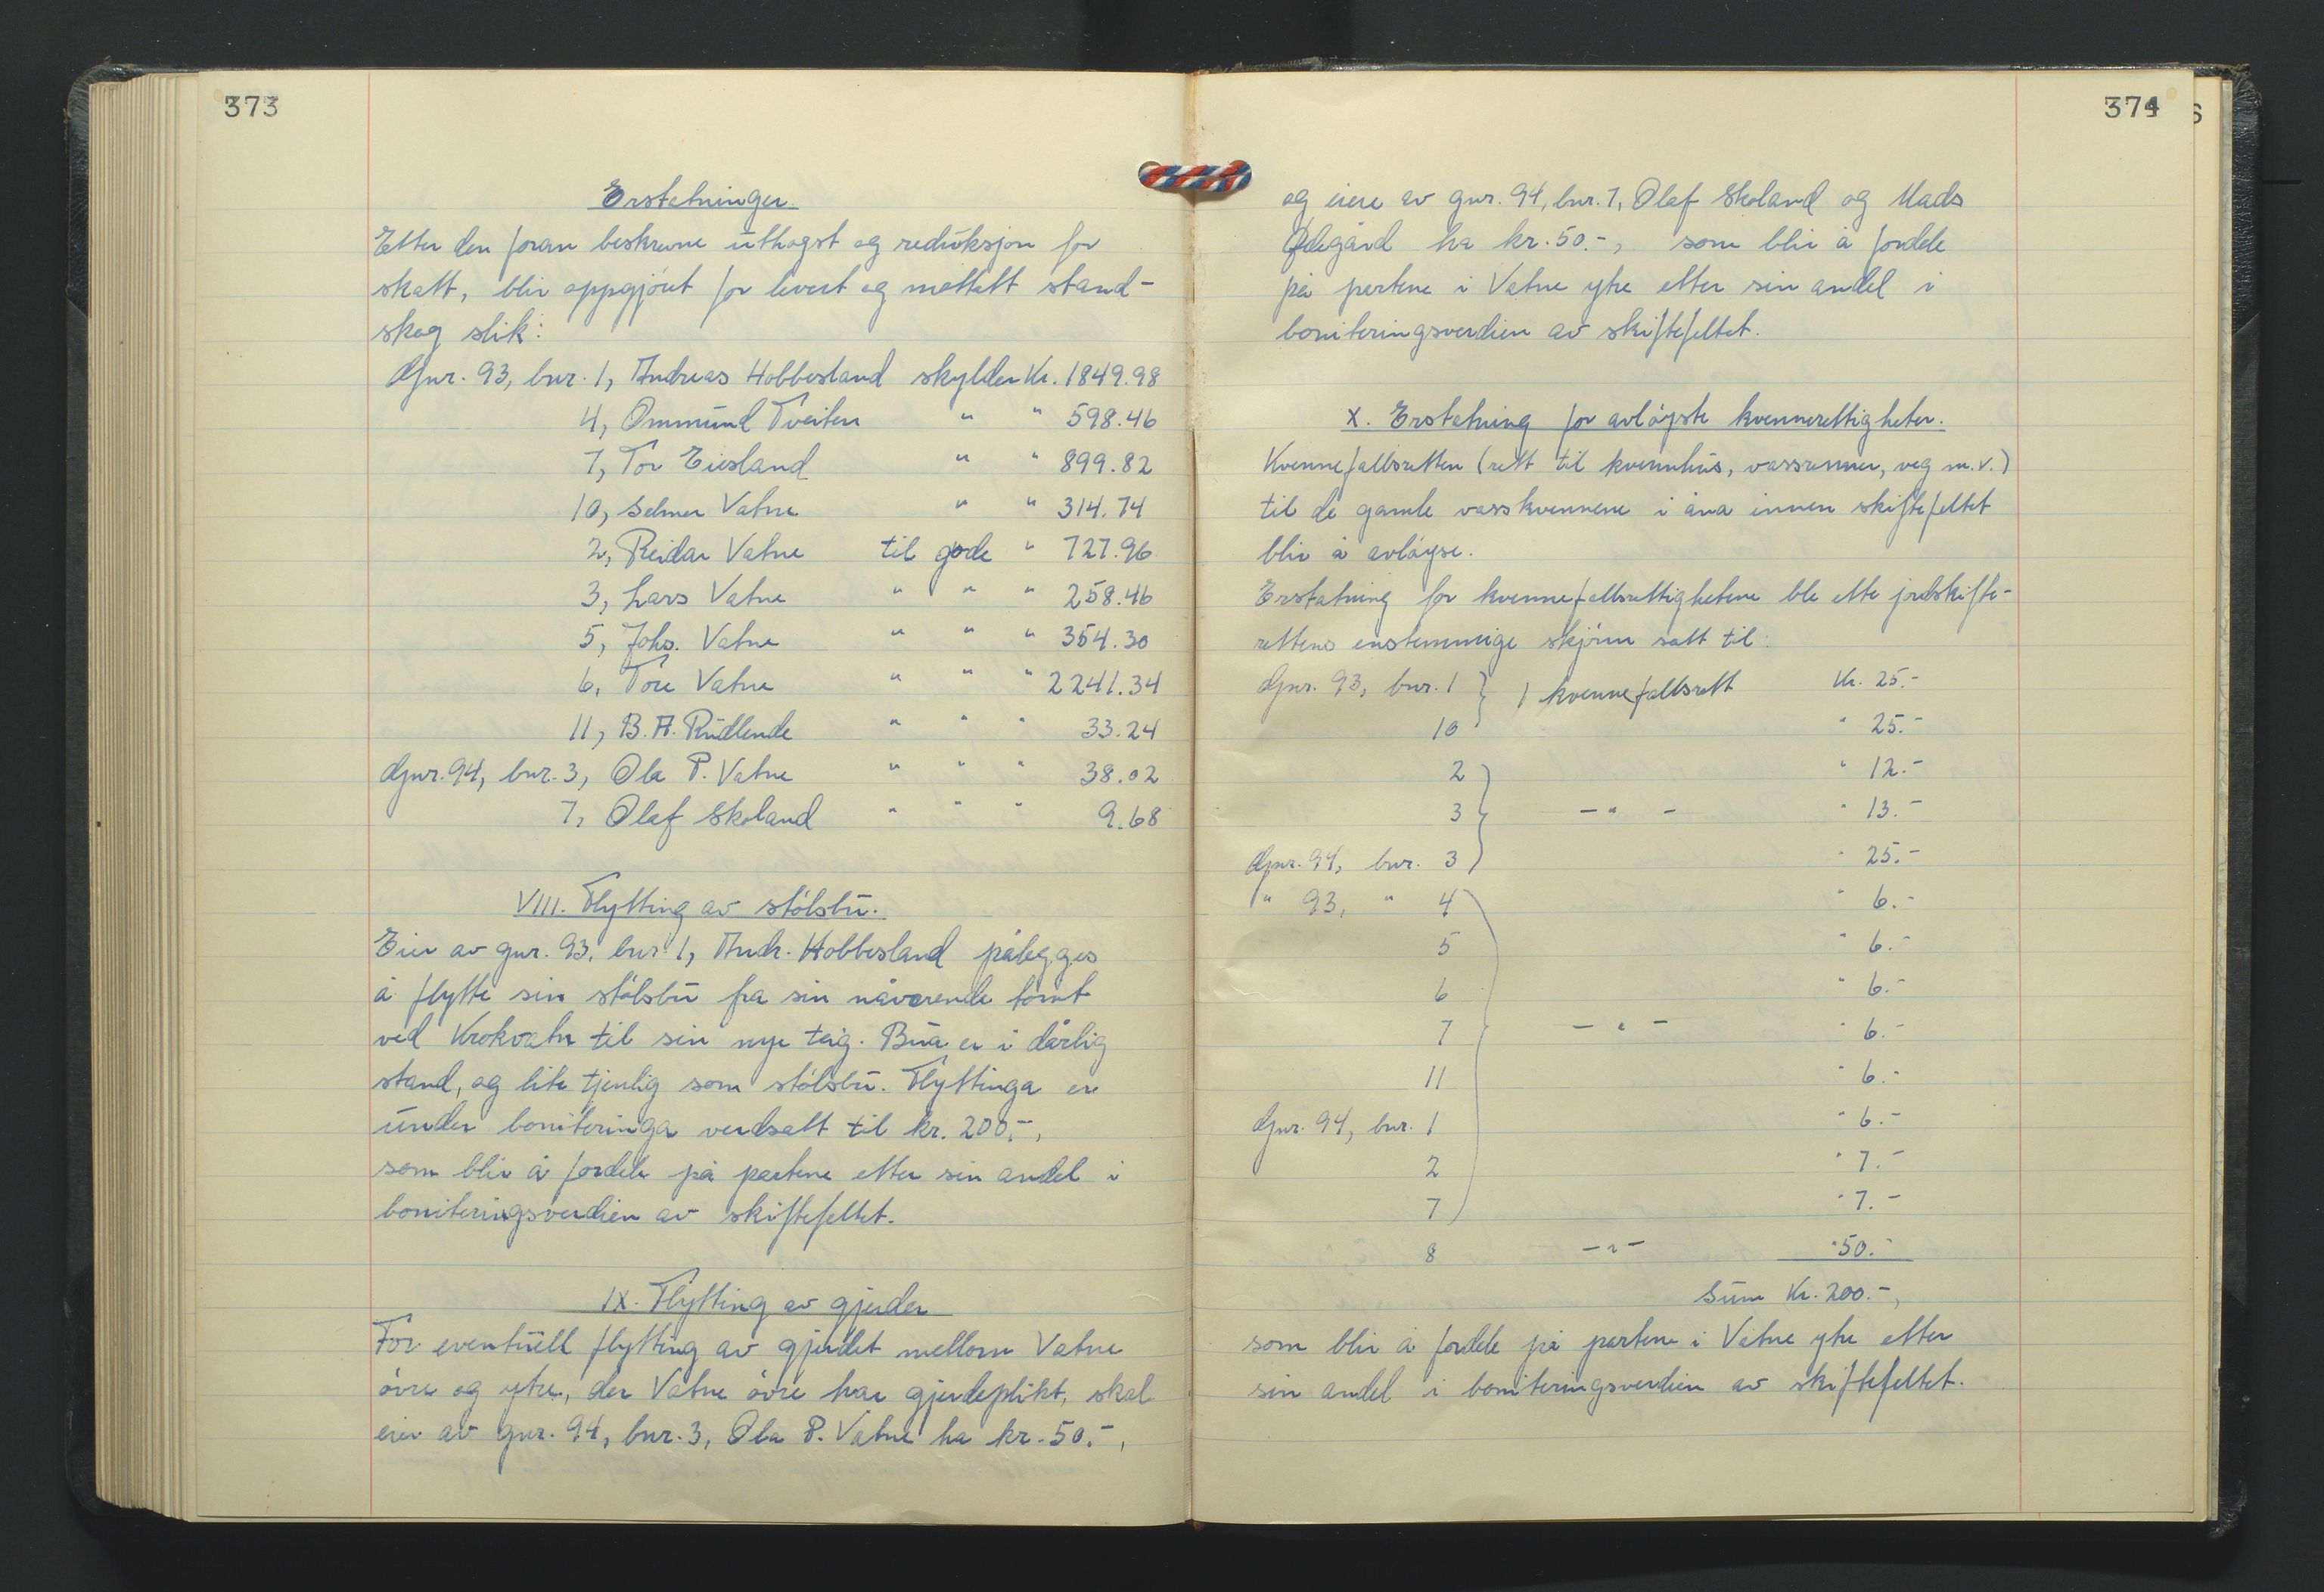 373
Erstatninger.
Etter den foran beskrevne uthogst og reduksjon for
skatt, blir oppgjöret for levert og mottatt stand-
skog slik:
Gnr. 93, bnr. 1, Andreas Hobbesland skylder Kr. 1849.98
4, Ommund Tveiten " " 598.46
7, Tor Eiesland " " 899.82
10, Selmer Vatne " " 314.74
2, Reidar Vatne til gode " 727.96
3, Lars Vatne " " " 258.46
5, Johs. Vatne " " " 354.30
6, Tore Vatne " " " 2241.34
11, B. A. Rudlende " " " 33.24
Gnr. 94, bnr. 3, Ola P. Vatne " " " 38.02
7, Olaf Skoland " " " 9.68
VIII. Flytting av stölsbu.
Eier av gnr. 93, bnr. 1, Andr. Hobbesland pålegges
å flytte sin stölsbu fra sin nåværende tomt
ved Krokvatn til sin nye teig. Bua er i dårlig
stand, og lite tjenlig som stölsbu. Flyttinga er
under boniteringa verdsatt til kr. 200.-,
som blir å fordele på partene etter sin andel i
boniteringsverdien av skiftefeltet.
IX. Flytting av gjerder
For eventuell flytting av gjerdet mellom Vatne
övre og ytre, der Vatne övre har gjerdeplikt, skal
eier av gnr. 94, bnr. 3, Ola P. Vatne ha kr. 50.-,
374
og eiere av gnr. 94, bnr. 7, Olaf Skoland og Mads
Ødegård ha kr. 50.-, som blir å fordele
på partene i Vatne ytre etter sin andel i
boniteringsverdien av skiftefeltet.
X. Erstatning for avlöyste kvennerettigheter.
Kvennefallsretten (rett til kvennhus, vassrenner, veg m.v.)
til de gamle vasskvennene i åna innen skiftefeltet
blir å avlöyse.
Erstatning for kvennefallsrettighetene ble etter jordskifte-
rettens enstemmige skjönn satt til:
Gnr. 93, bnr. 1 } 1 kvennefallsrett Kr. 25.-
10 " 25.-
2 " 12.-
3 } - " - " 13.-
Gnr. 94, bnr. 3 " 25.-
" 93, " 4 " 6.-
5 " 6.-
6 " 6.-
7 - " - " 6.-
11 " 6.-
Gnr. 94, bnr. 1 " 6.-
2 " 7.-
7 " 7.-
8 - " - " 50.-
Sum Kr. 200.-,
som blir å fordele på partene i Vatne ytre etter
sin andel i boniteringsverdien av skiftefeltet.